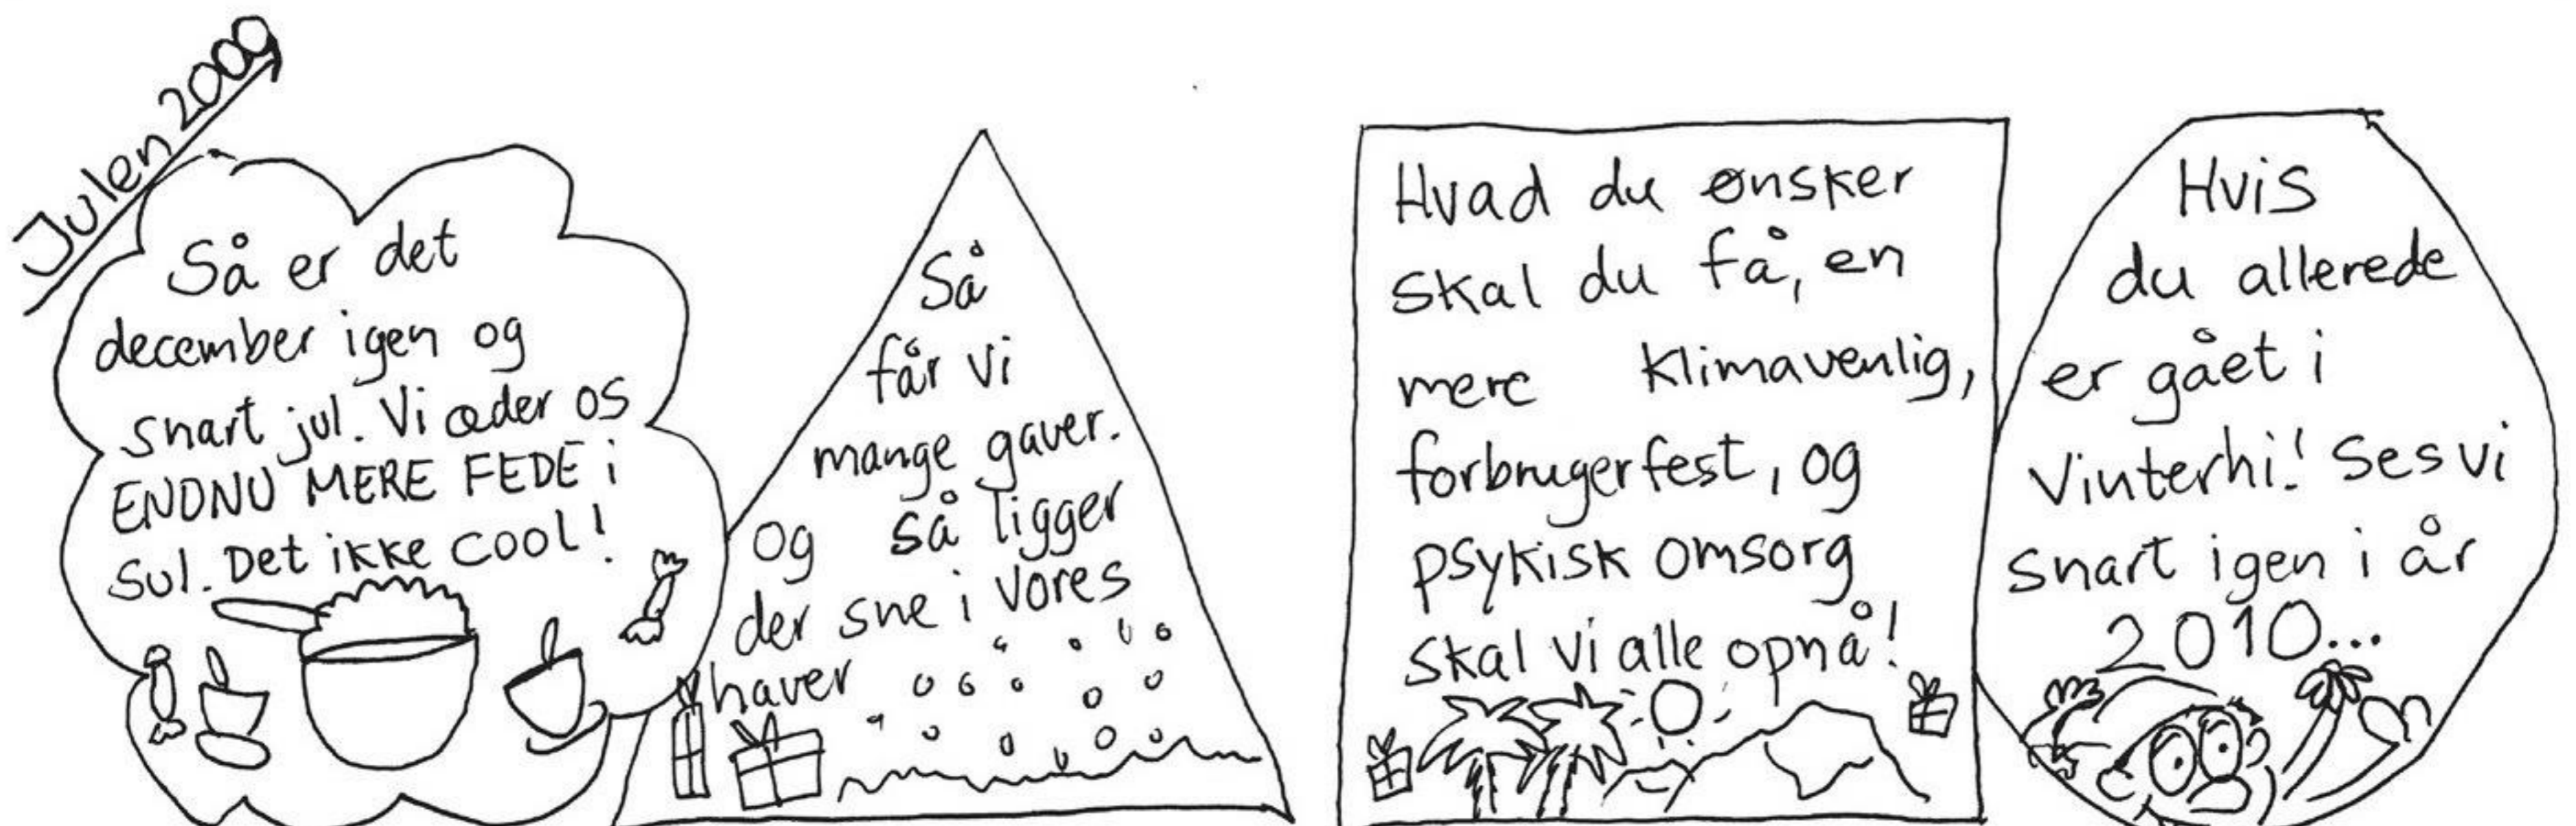 Julen 2009
Så er det
december igen og
snart jul. Vi æder os
ENDNU MERE FEDE i
Sul. Det ikke cool!
Så
får vi
mange gaver.
og så ligger
der sne i vores
haver
Hvad du ønsker
skal du få, en
mere klimavenlig,
forbrugerfest, og
psykisk omsorg
skal vi alle opnå!
Hvis
du allerede
er gået i
Vinterhi! Ses vi
snart igen i år
2010...